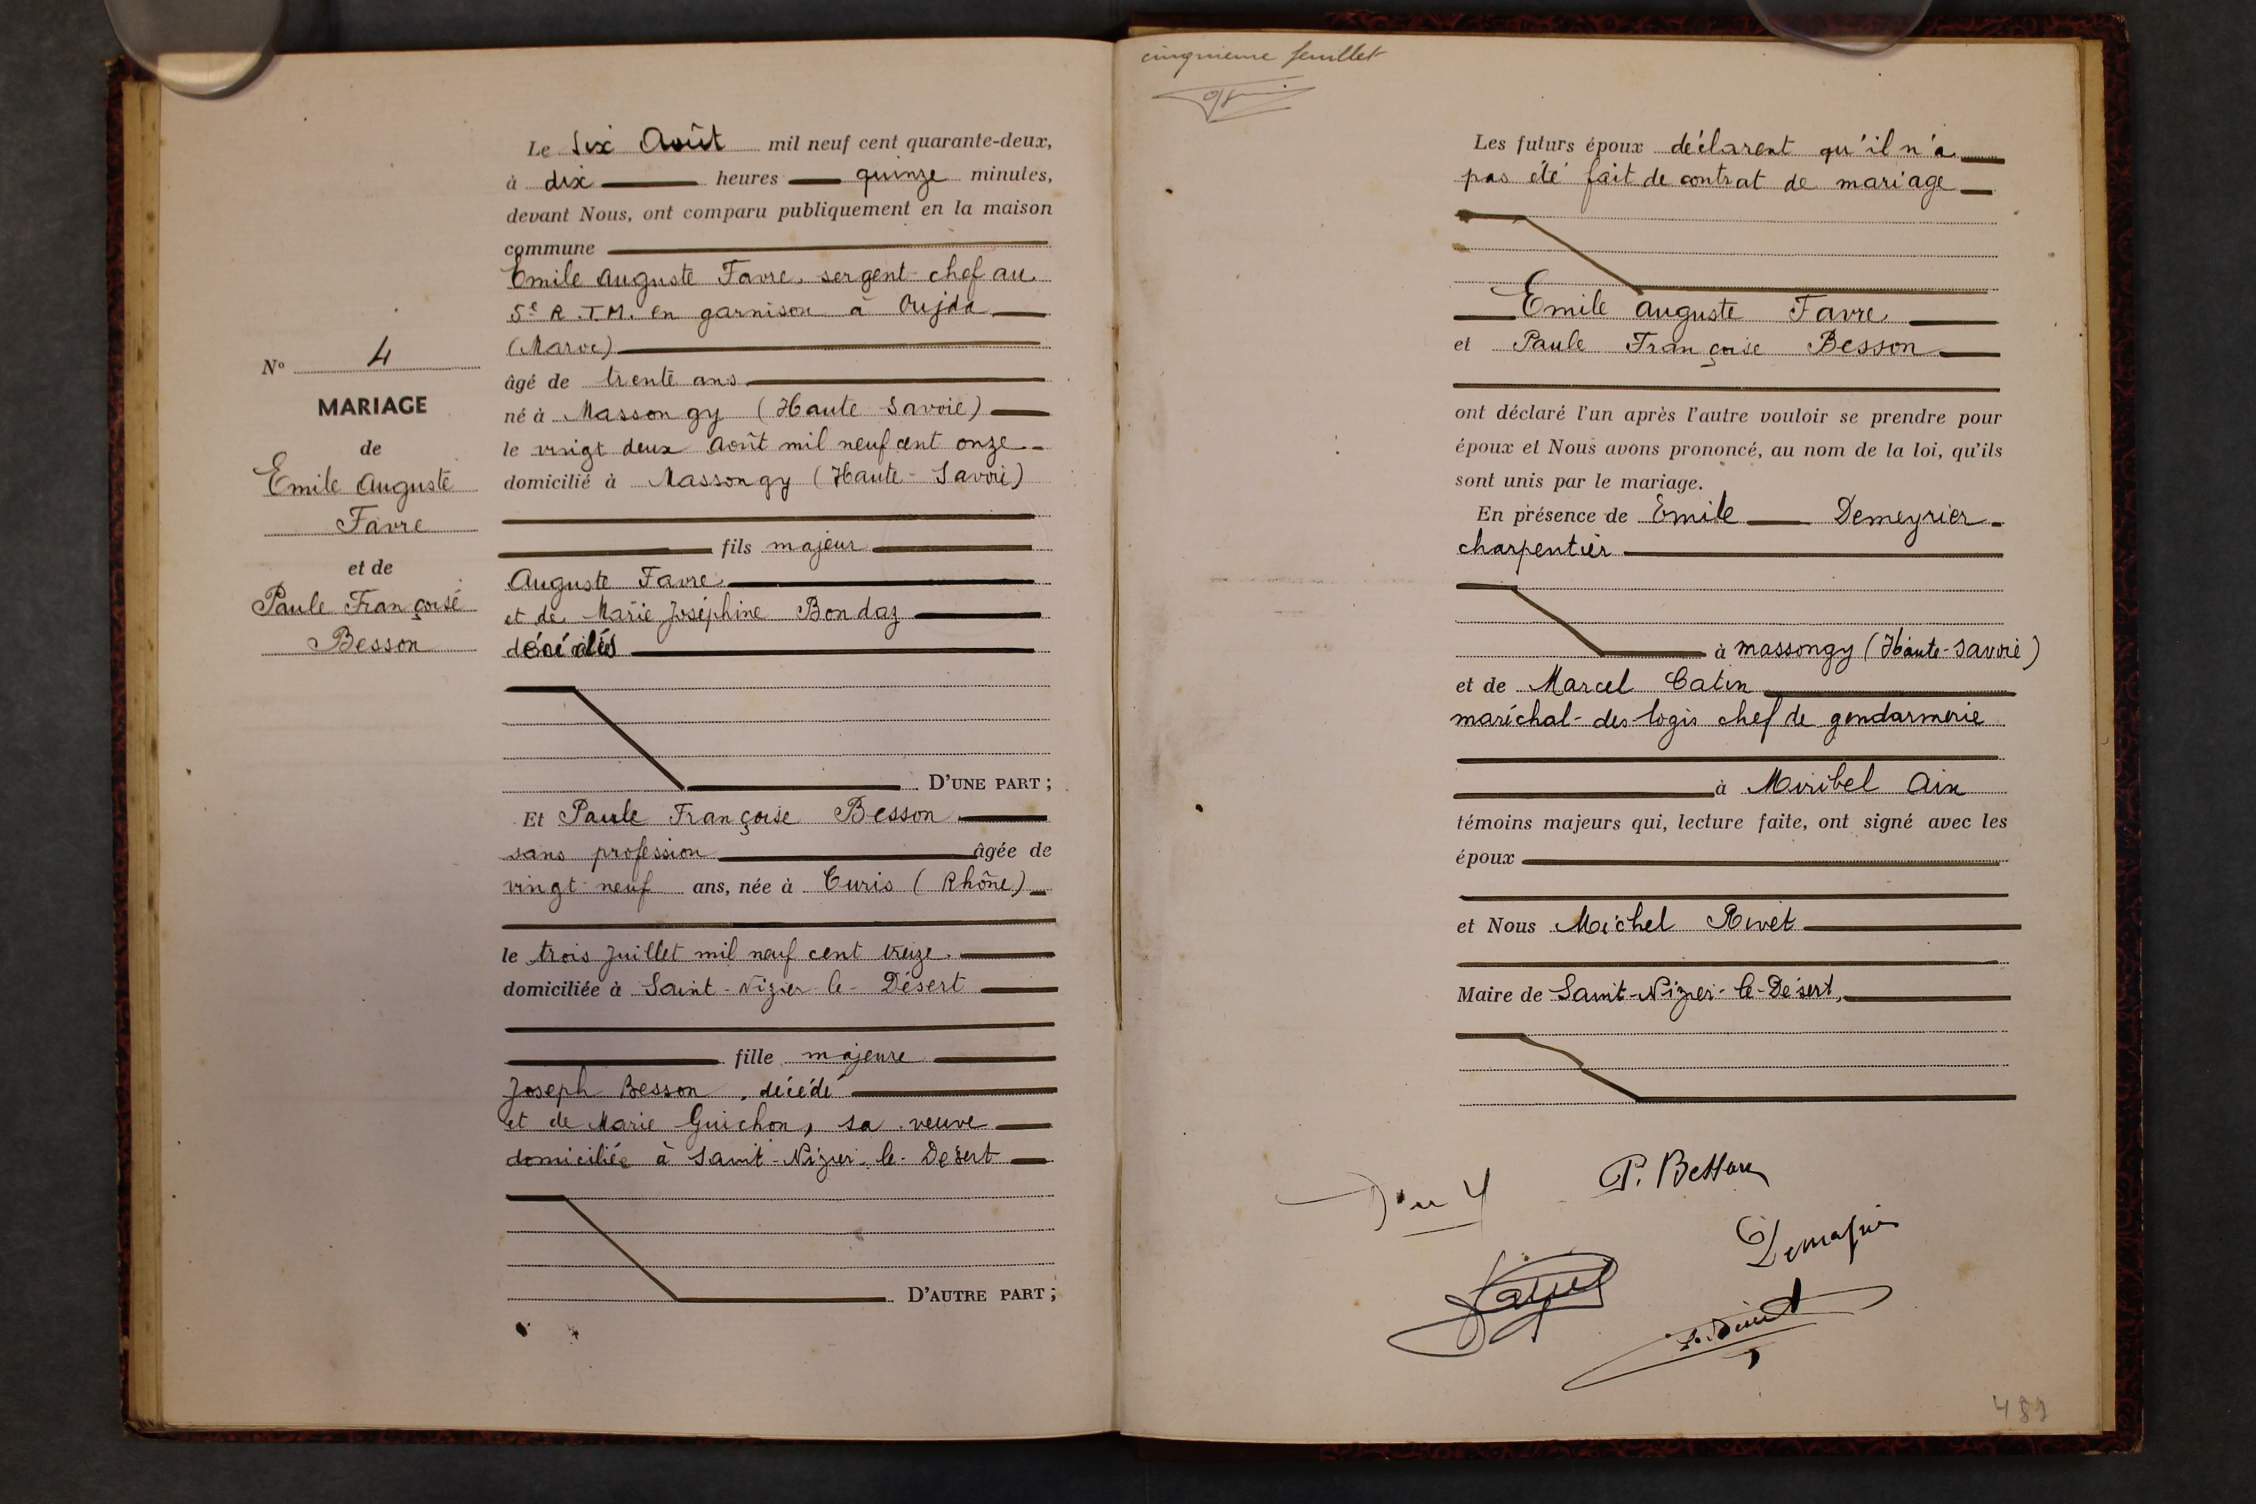 N° 4
MARIAGE
de
Emile Auguste
Favre
et de
Paule Françoise
Besson
Le Six Août mil neuf cent quarante-deux,
à dix heures quinze minutes,
devant Nous, ont comparu publiquement en la maison
commune
Emile Auguste Favre, sergent-chef au
5e R.T.M. en garnison à Oujda
(Maroc)
âgé de trente ans
né à Massongy (Haute Savoie)
le vingt deux Août mil neuf cent onze
domicilié à Massongy (Haute-Savoie)
fils majeur
Auguste Favre
et de Marie Joséphine Bondaz
décédés
D'UNE PART ;
Et Paule Françoise Besson
sans profession âgée de
vingt-neuf ans, née à Curis (Rhône)
le trois Juillet mil neuf cent treize.
domiciliée à Saint-Nizier-le-Désert
fille majeure
Joseph Besson, décédé
et de Marie Guichon, sa veuve
domiciliée à Saint-Nizier-le-Désert
D'AUTRE PART ;
cinquieme feuillet
Les futurs époux déclarent qu'il n'a
pas été fait de contrat de mariage
Emile Auguste Favre
et Paule Françoise Besson
ont déclaré l'un après l'autre vouloir se prendre pour
époux et Nous avons prononcé, au nom de la loi, qu'ils
sont unis par le mariage.
En présence de Emile Demeyrier
charpentier
à Massongy (Haute-Savoie)
et de Marcel Catin
maréchal-des-logis chef de gendarmerie
à Miribel Ain
témoins majeurs qui, lecture faite, ont signé avec les
époux
et Nous Michel Rivet
Maire de Saint-Nizier-le-Désert,
P. Besson
489